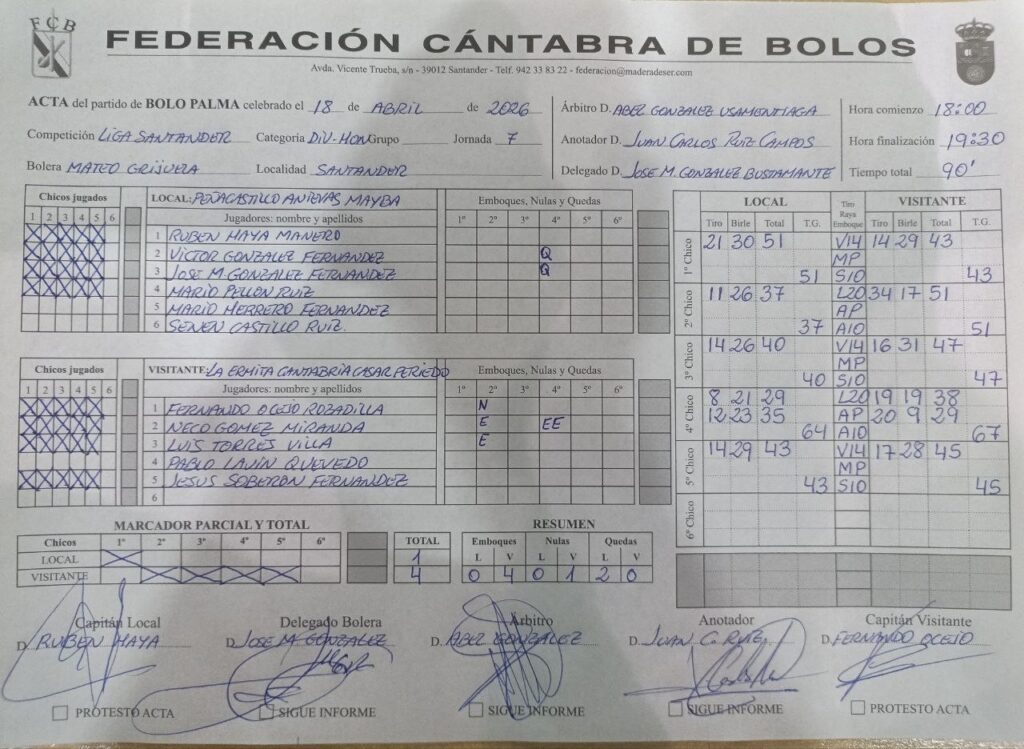 FCB
FEDERACIÓN CÁNTABRA DE BOLOS
Avda. Vicente Trueba, s/n - 39012 Santander - Telf. 942 33 83 22 - federacion@maderadeser.com
ACTA del partido de BOLO PALMA celebrado el 18 de ABRIL de 2026
Competición LIGA SANTANDER Categoría DIV-HON Grupo Jornada 7
Bolera MATEO GRIJUELA Localidad SANTANDER
Árbitro D. ABEL GONZALEZ USAMENTIAGA
Anotador D. JUAN CARLOS RUIZ CAMPOS
Delegado D. JOSE M. GONZALEZ BUSTAMANTE
Hora comienzo 18:00
Hora finalización 19:30
Tiempo total 90'
Chicos jugados
1 2 3 4 5 6
LOCAL: PEÑACASTILLO ANIEVAS MAYBA
Jugadores: nombre y apellidos
Emboques, Nulas y Quedas
1º 2º 3º 4º 5º 6º
1 RUBEN HAYA MANERO
2 VICTOR GONZALEZ FERNANDEZ Q
3 JOSE M. GONZALEZ FERNANDEZ Q
4 MARIO PELLON RUIZ
5 MARIO HERRERO FERNANDEZ
6 SENEN CASTILLO RUIZ.
Chicos jugados
1 2 3 4 5 6
VISITANTE: LA ERMITA CANTABRIA CASAR PERIEDO
Jugadores: nombre y apellidos
Emboques, Nulas y Quedas
1º 2º 3º 4º 5º 6º
1 FERNANDO OCEJO ROBADILLA N
2 NECO GOMEZ MIRANDA E EE
3 LUIS TORRES VILLA E
4 PABLO LAVIN QUEVEDO
5 JESUS SOBERON FERNANDEZ
6
LOCAL Tiro Raya Emboque VISITANTE
Tiro Birle Total T.G. Tiro Birle Total T.G.
1º Chico
21 30 51 V14 14 29 43
MP
51 S10 43
2º Chico
11 26 37 L20 34 17 51
AP
37 A10 51
3º Chico
14 26 40 V14 16 31 47
MP
40 S10 47
4º Chico
8 21 29 L20 19 19 38
12 23 35 AP 20 9 29
64 A10 67
5º Chico
14 29 43 V14 17 28 45
MP
43 S10 45
6º Chico
MARCADOR PARCIAL Y TOTAL
Chicos 1º 2º 3º 4º 5º 6º TOTAL
LOCAL 1
VISITANTE 4
RESUMEN
Emboques Nulas Quedas
L V L V L V
0 4 0 1 2 0
Capitán Local
D. RUBEN HAYA
Delegado Bolera
D. JOSE M. GONZALEZ
Árbitro
D. ABEL GONZALEZ
Anotador
D. JUAN C. RUIZ
Capitán Visitante
D. FERNANDO OCEJO
PROTESTO ACTA
SIGUE INFORME
SIGUE INFORME
SIGUE INFORME
PROTESTO ACTA